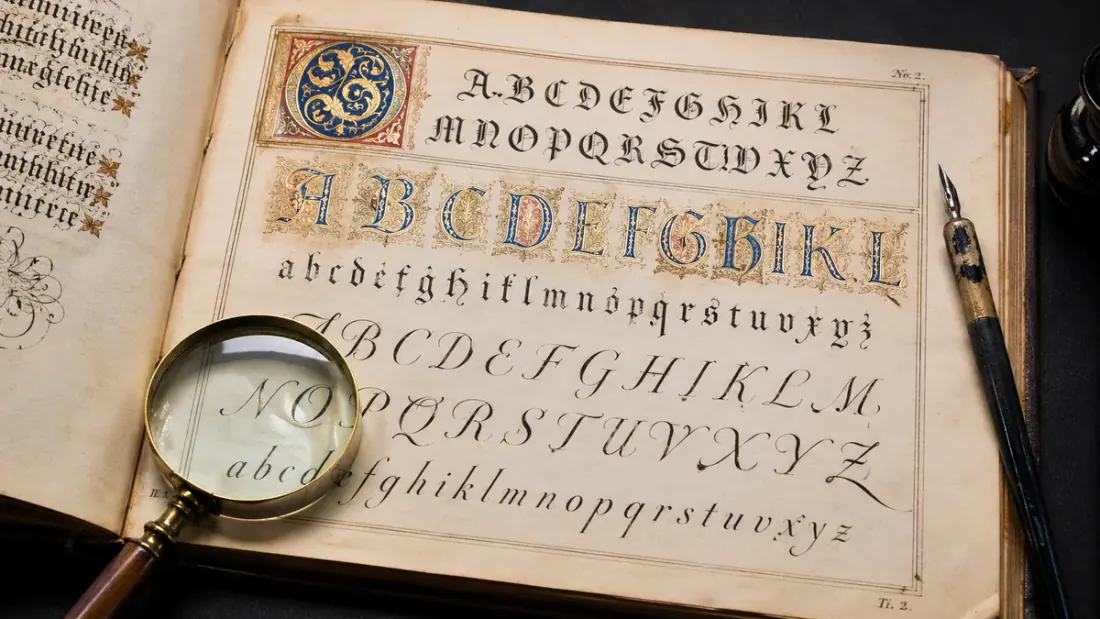 No. 2.
A B C D E F G H I K L
M N O P Q R S T U V X Y Z
A B C D E F G H I K L
a b c d e f g h i k l m n o p q r s t u v x y z
A B C D E F G H I K L M
N O P Q R S T U V X Y Z
a b c d e f g h i k l m n o p q r s t u v x y z
Ti. 2.